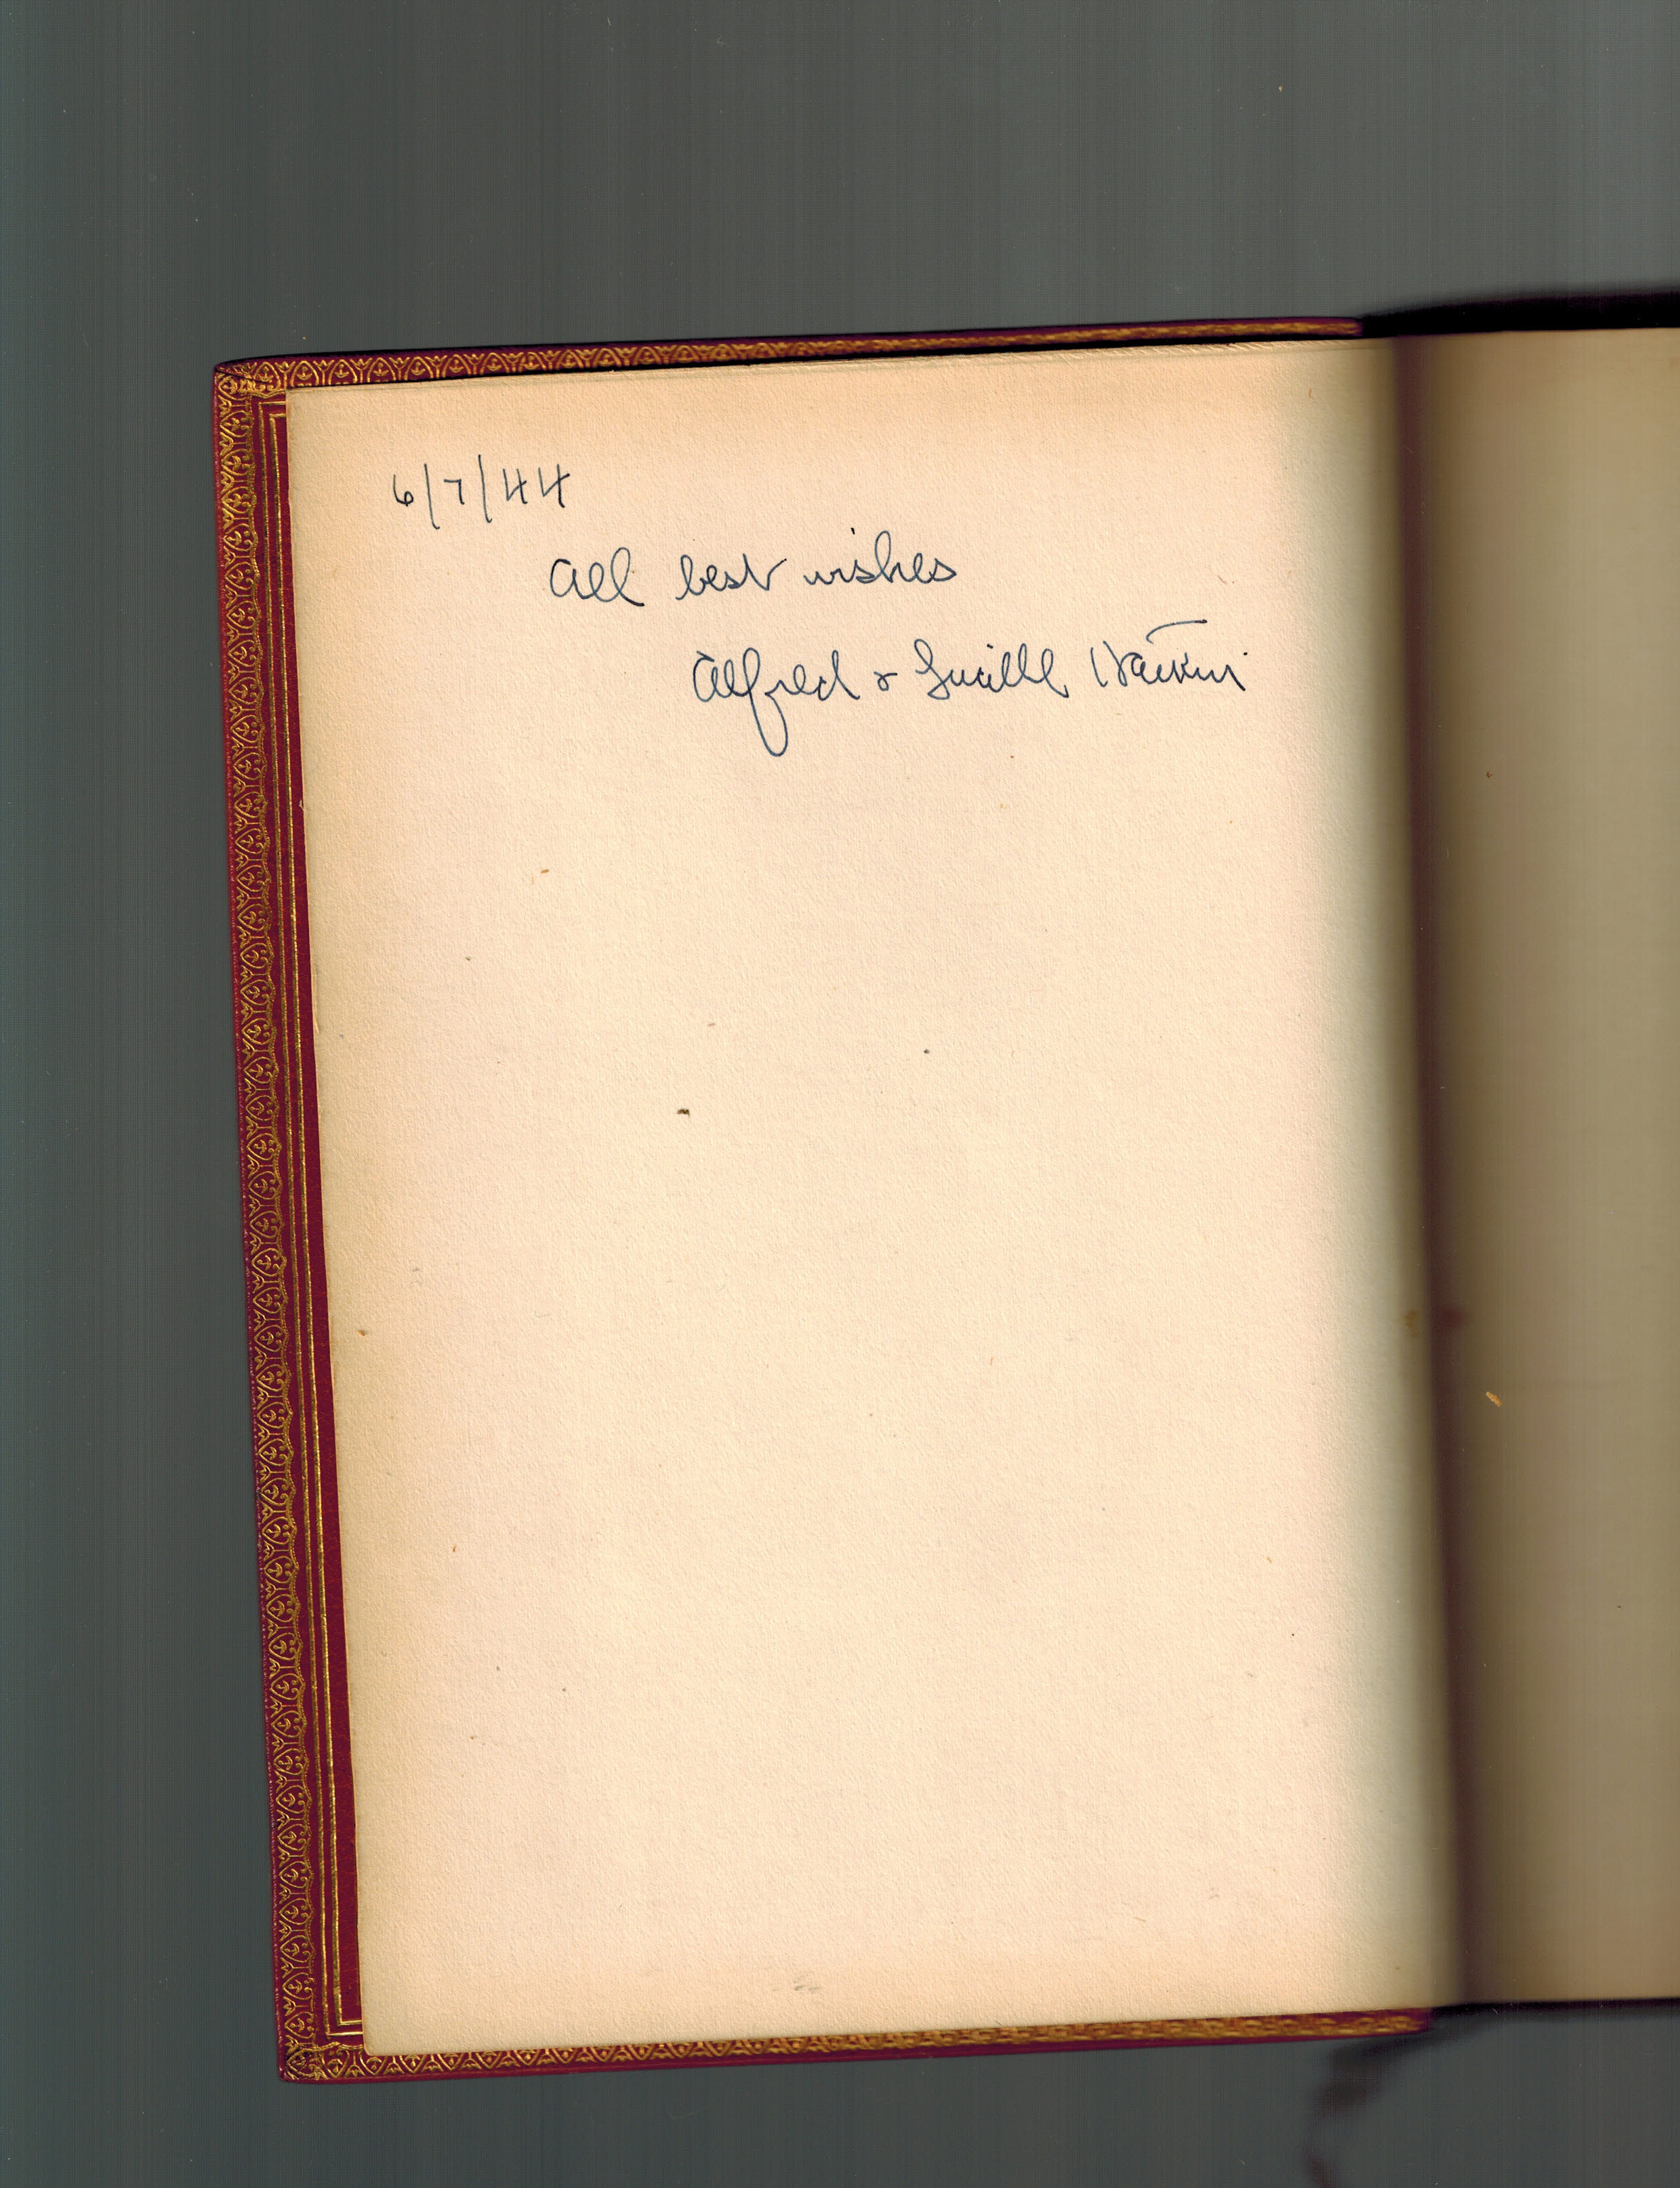 6/7/44
All best wishes
Alfred & Lucille